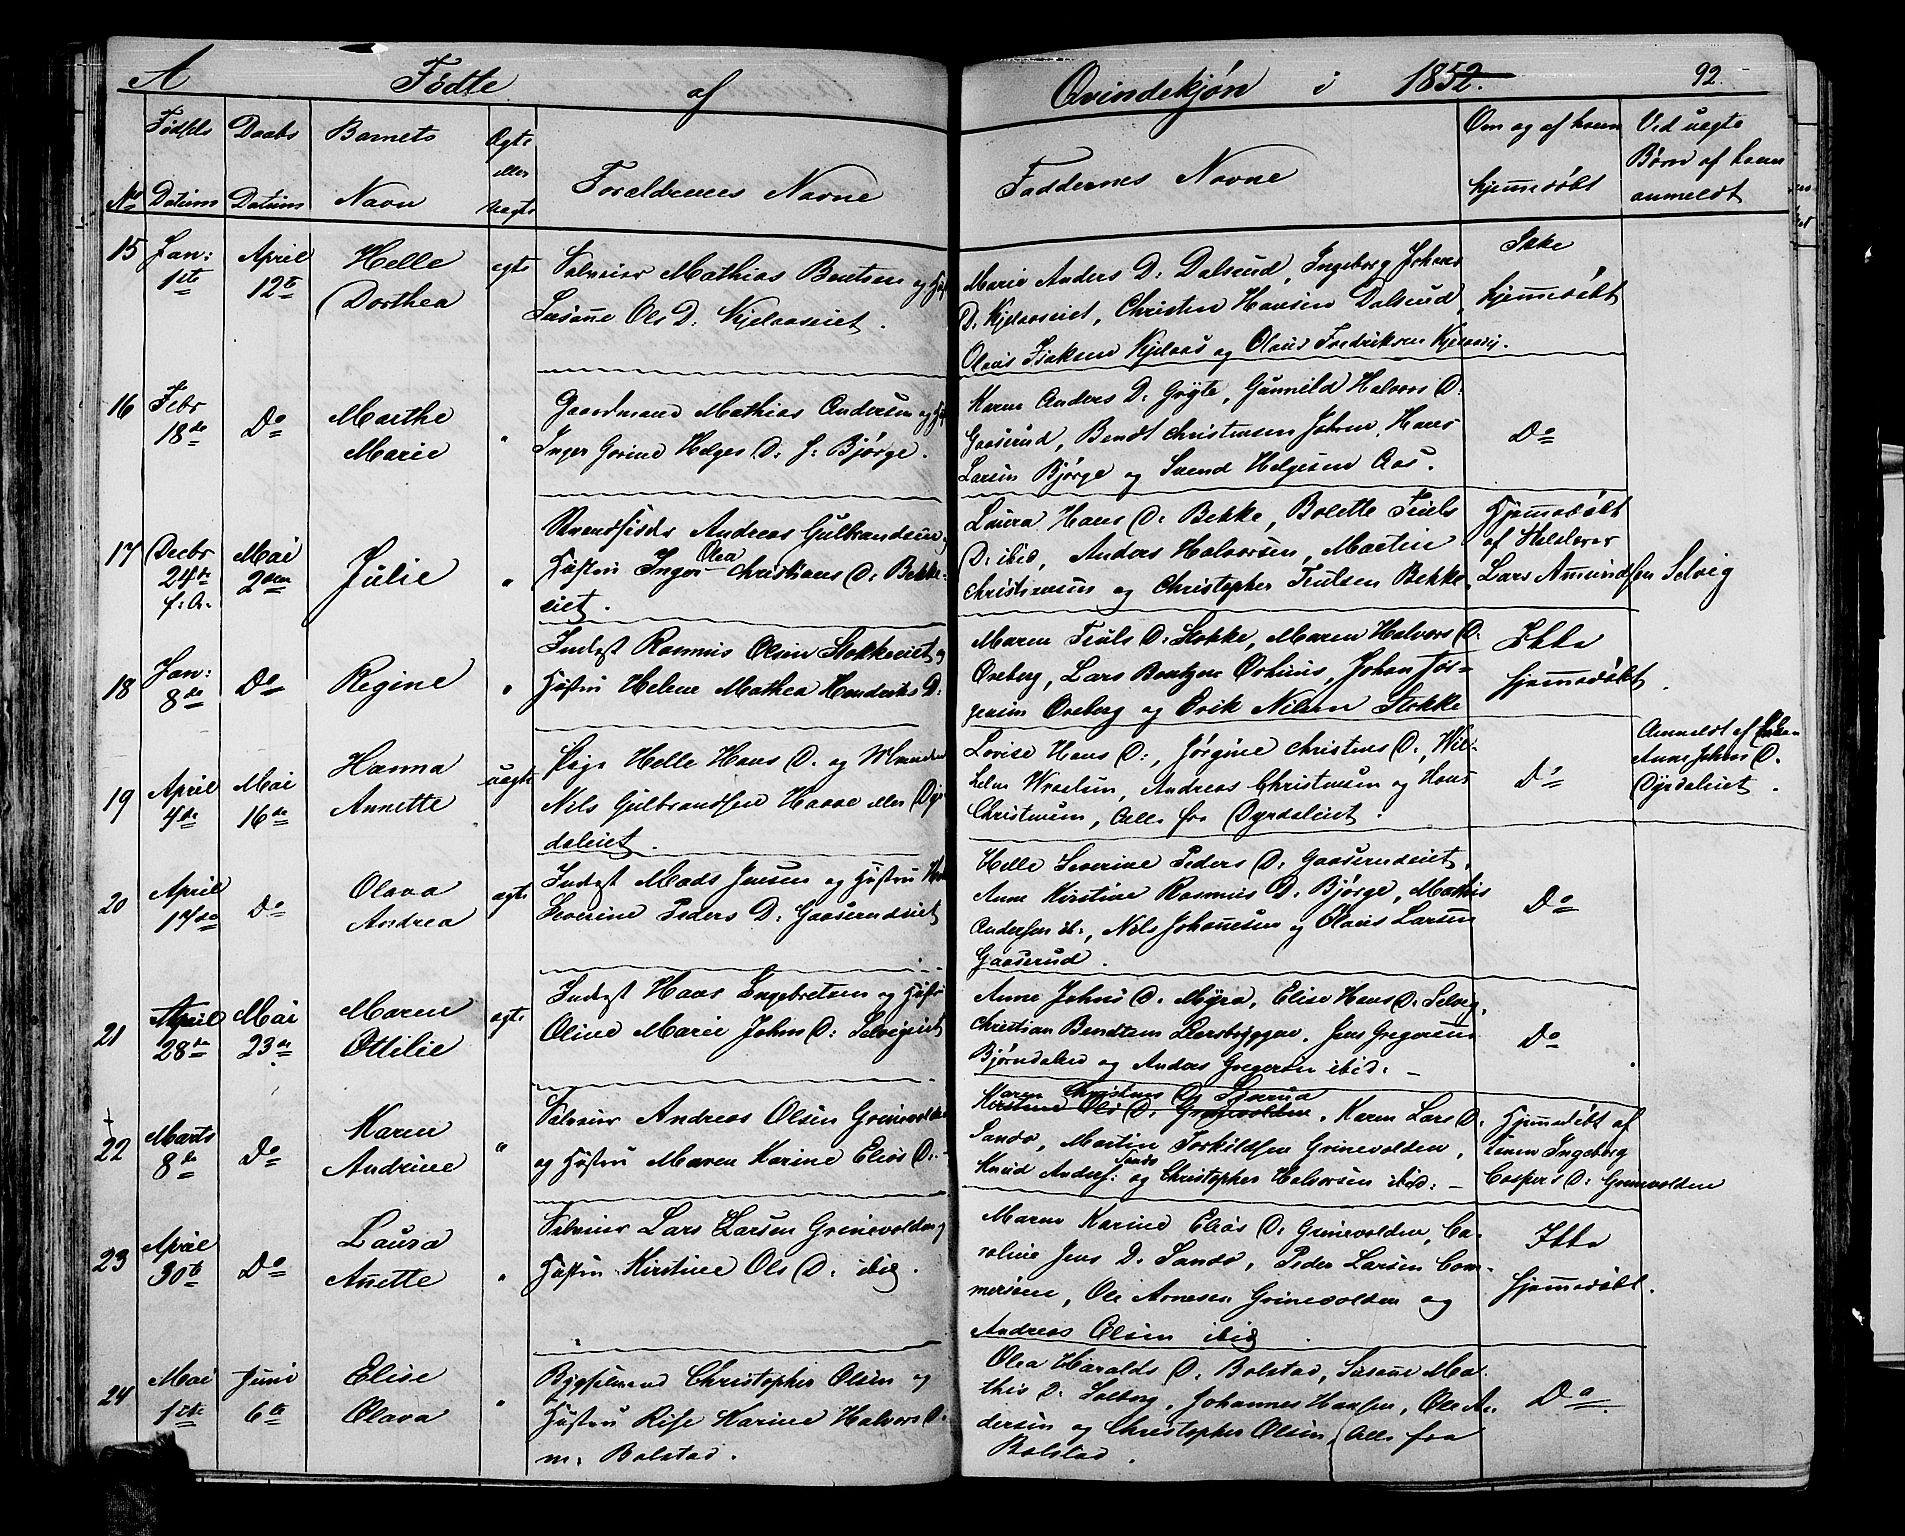 A Fødte af Qvindekjøn i 1852. 92.
No Fødsels Datum Daabs Datum Barnets Navn Ægte eller Uægte Forældrenes Navne Faddernes Navne Om og af hvem hjemmedøbt Ved uægte Børn af hvem anmeldt
15 Jan: 1ste April 12te Helle Dorthea egte
Selveier Mathias Bentsen og
Susanne Ols D: Kjelaaseiet.
Marie Anders D: Dalsrud, Ingeborg Johans
D: Kjelaaseiet, Christen Hansen Dalsrud,
Olaus Isaksen Kjelaas og Olaus Fredriksen
Ikke hjemmedøbt
16 Febr 18de Do Marthe Marie "
Gaardmand Mathias Andersen og
Inger Gorine Helges D: f: Bjørge.
Karen Anders D: Gryte, Gunnild Halvors D:
Gaaserud, Bendt Christensen, Hans
Larsen Bjørge og Svend Helgesen Aas.
Do
17 Decbr 24de f: A. Mai 2den Julie "
Strandsidder Andreas Gulbrandsen
Hustru Inger Olea Christians D: Bekke-
eiet.
Laura Hans D: Bekke, Bolette Teuls
D: ibid, Anders Halvorsen, Martin
Christensen og Christopher Teulsen Bekke.
Hjemmedøbt
af Holderer
Lars Amundsen Selvig
18 Jan: 8de Do Regine "
Inderst Rasmus Olsen Stokkeeiet og
Hustru Helene Mathea Hendriks D:
Maren Teuls D: Stokke, Maren Halvors D:
Oreberg, Lars Bentzen, Johan Jør-
gensen Oreberg og Erik Nilsen Stokke
Ikke
hjemmedøbt.
19 April 4de Mai 16de Hanna Annette uægte
Pige Helle Hans D. og
Nels Gulbrandsen eller Dyr-
daleiet.
Lovise Hans D:, Jørgine Christens D:, Wil-
helm, Andreas Christensen og Hans
Christensen, Alle fra Dyrdaleiet.
Do
Anmeldt af
Anne Johns D.
Dyrdaleiet.
20 April 17de Do Olava Andrea ægte
Inderst Mads Jensen og Hustru
Severine Peders D: Gaaserudeiet
Helle Severine Peders D: Gaaserudeiet,
Anne Kirstine Rasmus D: Bjørge, Mathis
Andersen ib:, Nels Johannesen og Olaus Larsen
Gaaserud.
Do
21 April 28de Mai 23de Maren Ottilie ægte
Inderst Hans Engebretsen og Hustru
Oline Marie Johns D: Selvigeiet
Anne Johns D. Myra, Elise Hans D: Selvig,
Christian Bendtsen, Jens Gregersen
Bjørndalen og Anders Gregersen ibid. —
Do
22 Marts 8de Do Karen Andrine "
Selveier Andreas Olsen Grinevolden
og Hustru Maren Karine Elias D: —
Maren Christens D:
Kirstine Ols D: Grinevolden, Karen Lars D:
Sando, Martin Torkildsen Grinevolden,
Knud Anders: Sando og Christopher Halvorsen ibid: —
Hjemmedøbt af
konen Ingeborg
Caspers D: Grinevolden
23 April 30te Do Laura Anette "
Selveier Lars Larsen Grinevolden og
Hustru Kirstine Ols D: ibid.
Maren Karine Elias D: Grinevolden, Ca-
roline Jens D: Sando, Peder Larsen Com-
mersøen, Ole Arnesen Grinevolden og
Andreas Olsen ibid.
Ikke
hjemmedøbt.
24 Mai 1ste Juni 6te Elise Olava "
Bygselmand Christopher Olsen og
Hustru Rise Karine Halvors D:
m. Bolstad.
Olea Haralds D: Bolstad, Susanne Ma-
this D: Solberg, Johannes Hansen, Ole An-
dersen og Christopher Olsen, Alle fra
Bolstad.
Do